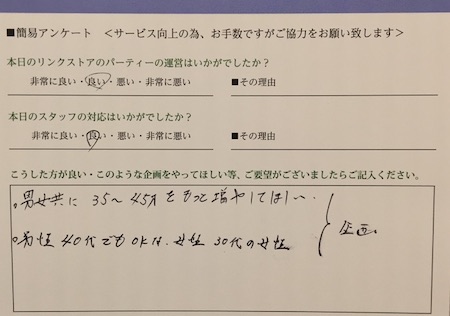 ■簡易アンケート <サービス向上の為、お手数ですがご協力をお願い致します>
本日のリンクストアのパーティーの運営はいかがでしたか?
非常に良い・良い・悪い・非常に悪い ■その理由
本日のスタッフの対応はいかがでしたか?
非常に良い・良い・悪い・非常に悪い ■その理由
こうした方が良い・このような企画をやってほしい等、ご要望がございましたらご記入ください。
。男女共に 35〜45才をもっと増やしてほしい.
。男性 40代でもOKな 女性 30代の女性
企画